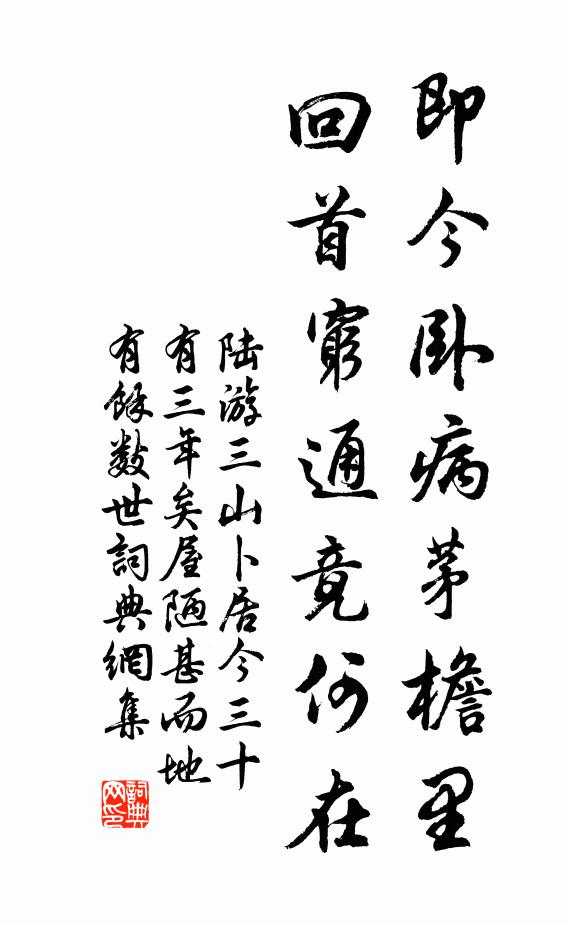 即今卧病茅檐里
回首窮通竟何在
陆游三山卜居今三十
有三年矣屋陋甚而地
有餘数世詞典網集
詞典
网印